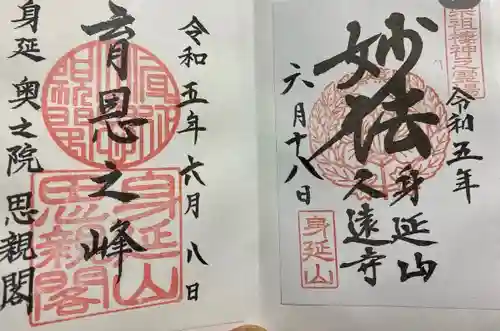 令和五年六月八日
育恩之峰
身延 奥之院 思親閣
身延山
思親閣
宗祖棲神之霊場
令和五年
妙法
身延山
久遠寺
六月十八日
身延山